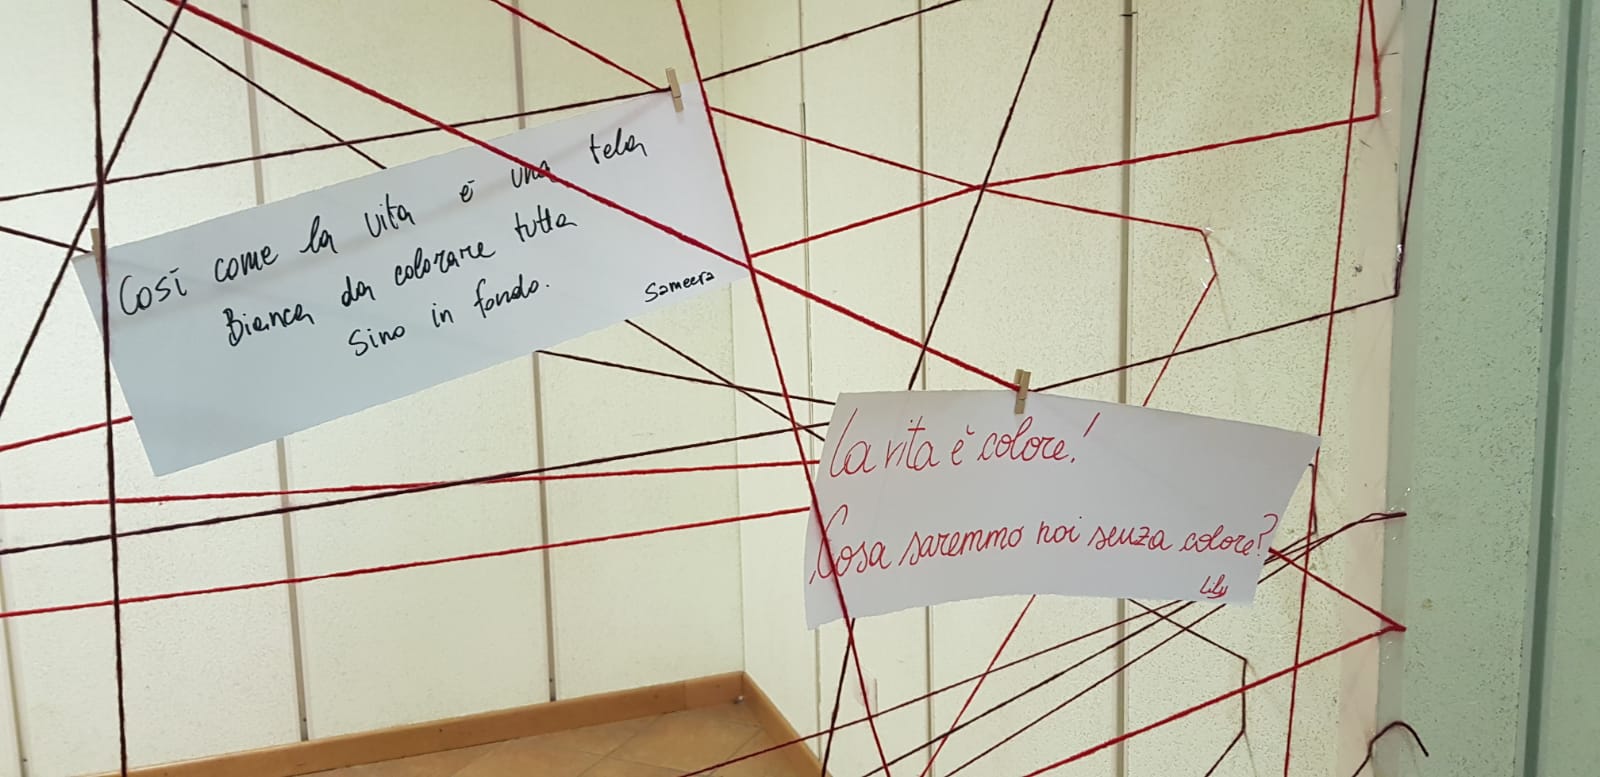 Così come la vita è una tela
Bianca da colorare tutta
Sino in fondo.
Sameera
La vita è colore!
Cosa saremmo noi senza colore?
Lily